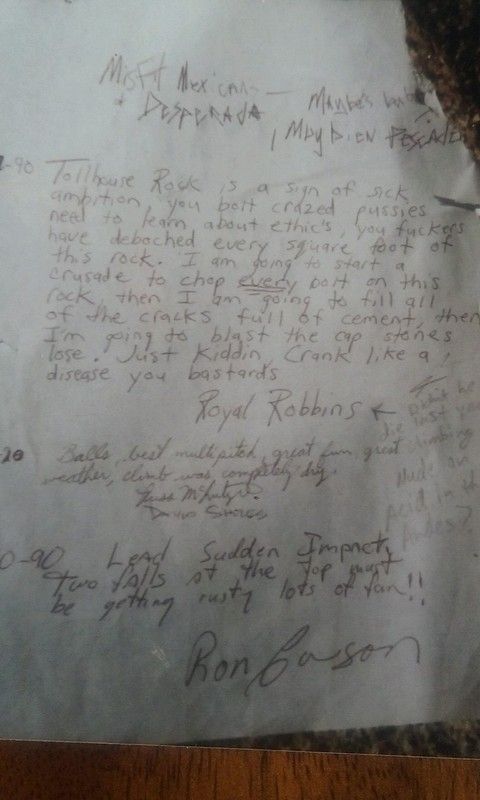 Misfit Mexicans —
+ DESPERADA
Maybe's
, May bien PESCADER
-90 Tollhouse Rock is a sign of sick
ambition, you bolt crazed pussies
need to learn about ethic's, you fuckers
have deboched every square foot of
this rock. I am going to start a
crusade to chop every bolt on this
rock, then I am going to fill all
of the cracks full of cement, then
I'm going to blast the cap stones
lose. Just Kiddin, Crank like a
disease you bastards
Royal Robbins ←
Didn't he
die last year
climbing
Nude on
Acid in the
Andes?
-20 Balls, best multipited, great fun, great
weather, climb was completely dry.
0-90 Lead Sudden Impact,
two falls at the top must
be getting rusty lots of fun!!
Ron Carson